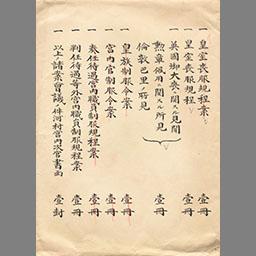 一 皇室喪服規程案 壹冊
一 皇室喪服規程 壹冊
一 英國御大喪ニ関スル見聞
勲章佩用ニ関スル所見 壹冊
倫敦巴里ノ所見
一 皇族制服令案 壹冊
一 宮内官制服令案 壹冊
一 奏任待遇宮内職員制服規程案 壹冊
一 判任待遇等外宮内職員制服規程案 壹冊
一 以上ノ諸案会議ノ件河村宮内次官書面 壹封